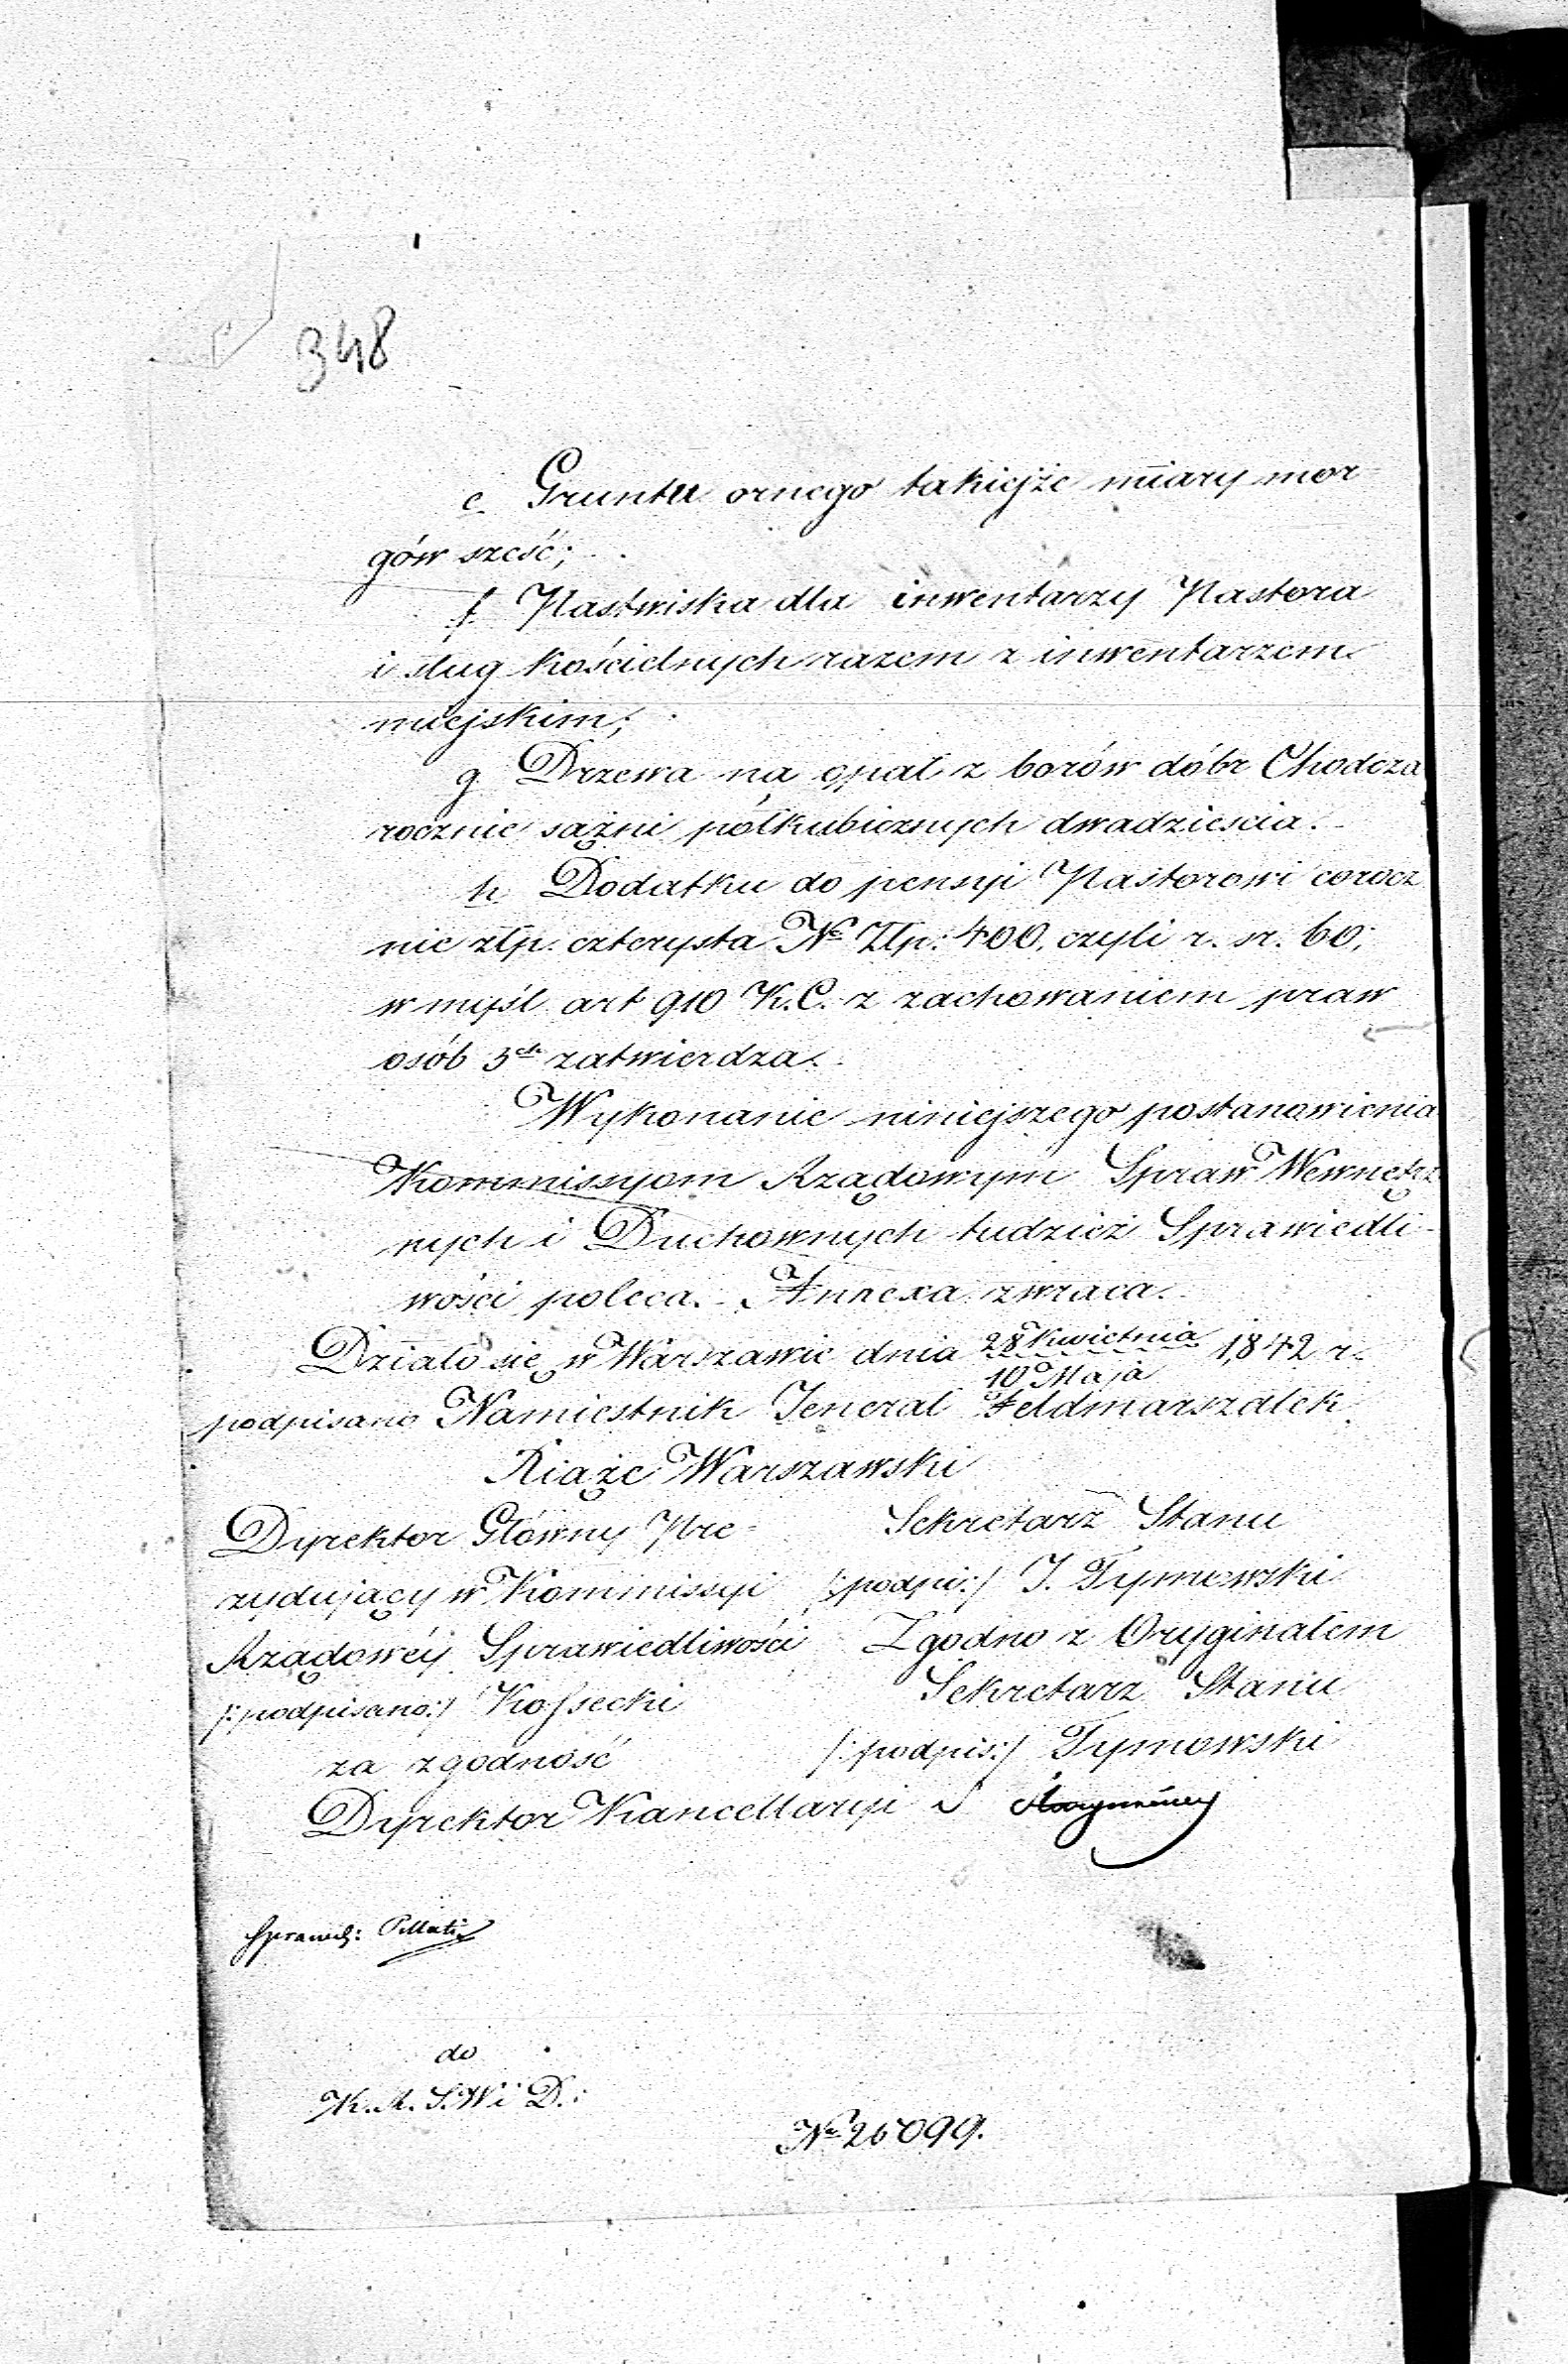 348
e. Gruntu ornego takiejże miary mor
gów sześć;
f. Pastwiska dla inwentarzy Pastora
i sług kościelnych razem z inwentarzem
miejskim;
g. Drzewa na opał z borów dóbr Chodcza
rocznie sążni półkubicznych dwadzieścia.
h. Dodatku do pensyi Pastorowi corocz
nie złp. czterysta No Złp. 400. czyli r. sr. 60;
w myśl art 910 K. C. z zachowaniem praw
osób 3ch zatwierdza.
Wykonanie niniejszego postanowienia
Kommissyom Rządowym Spraw Wewnętrz
nych i Duchownych tudzież Sprawiedli-
wości poleca. - Annexa zwraca.
Działo się w Warszawie dnia 28 Kwietnia 1842 r.
10 Maja
podpisano Namiestnik Jenerał Feldmarszałek
Xiąże Warszawski
Dyrektor Główny Pre=
zydujący w Kommissyi
Rządowéj Sprawiedliwości
/:podpisano:/ Kossecki
za zgodność
Sekretarz Stanu
/:podpis:/ J. Tymowski
Zgodno z Oryginałem
Sekretarz Stanu
/:podpis:/ Tymowski
Dyrektor Kancellaryi
Sprawdz:
do
K. R. S. W i D.:
No 26099.